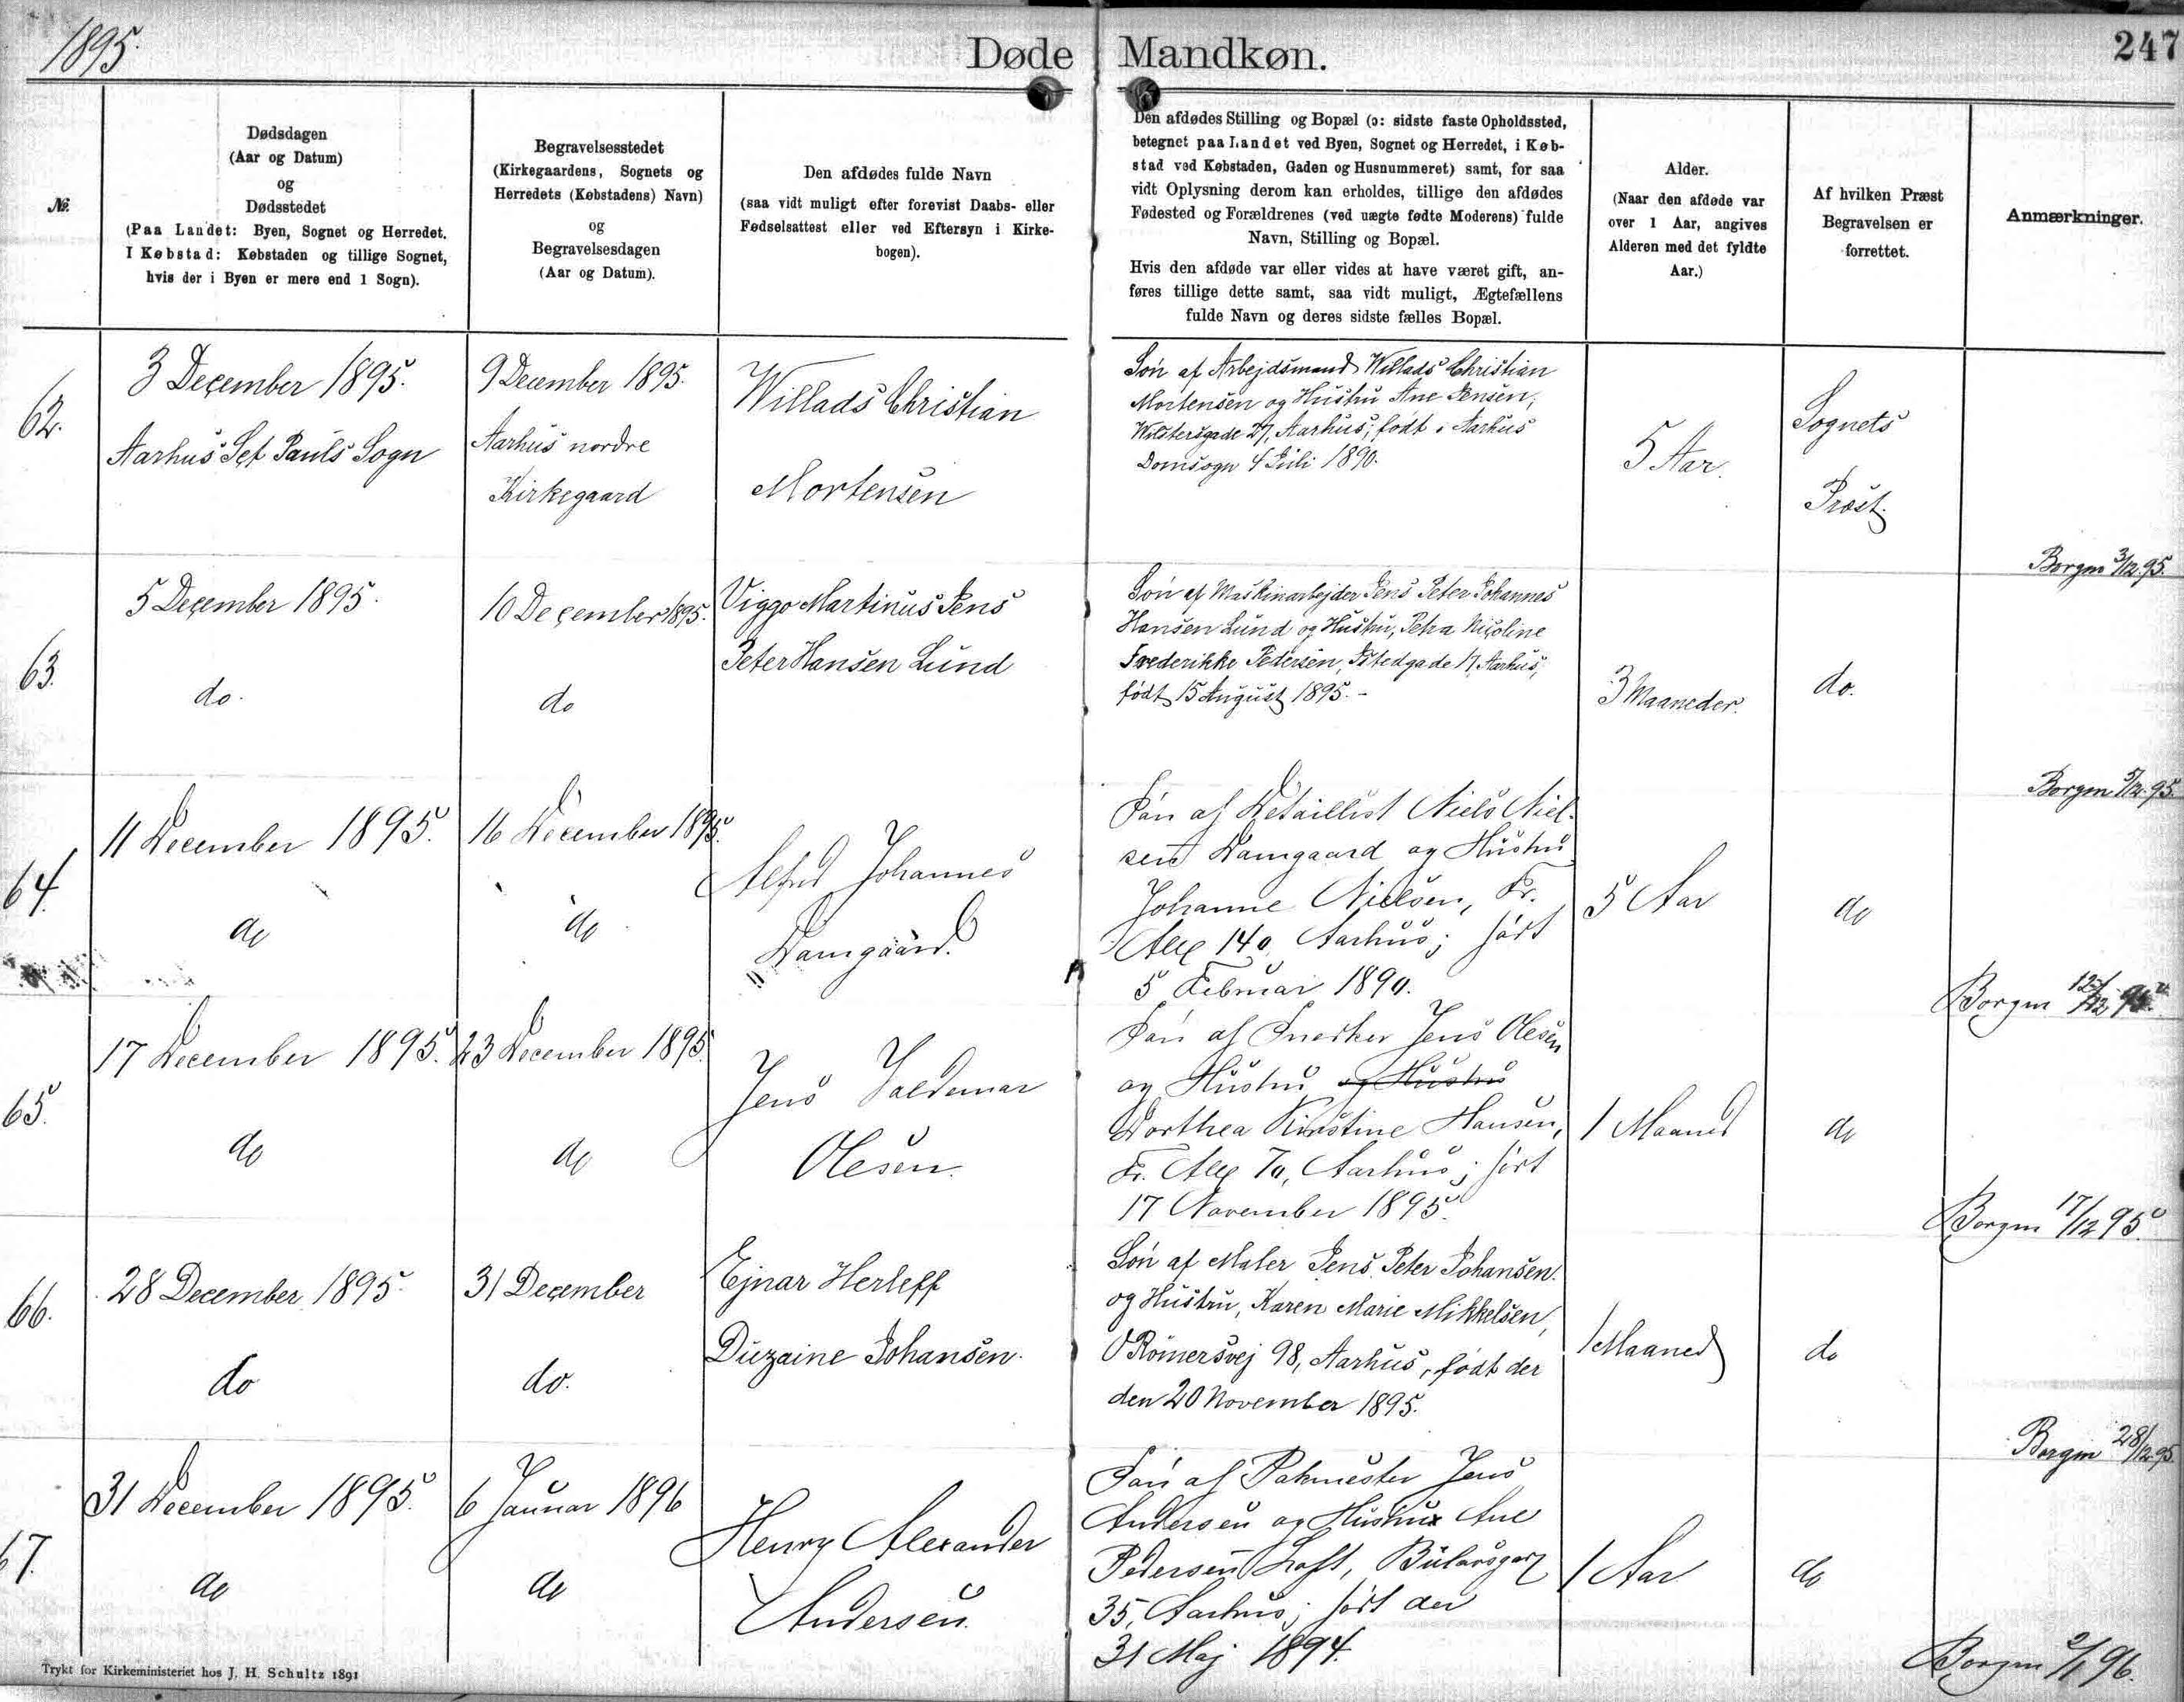 1895.
Døde Mandkøn.
247
№.
Dødsdagen
(Aar og Datum)
og
Dødsstedet
(Paa Landet: Byen, Sognet og Herredet.
I Købstad: Købstaden og tillige Sognet,
hvis der i Byen er mere end 1 Sogn).
Begravelsesstedet
(Kirkegaardens, Sognets og
Herredets (Købstadens) Navn)
og
Begravelsesdagen
(Aar og Datum).
Den afdødes fulde Navn
(saa vidt muligt efter forevist Daabs- eller
Fødselsattest eller ved Eftersyn i Kirke-
bogen).
Den afdødes Stilling og Bopæl (ɔ: sidste faste Opholdssted,
betegnet paa Landet ved Byen, Sognet og Herredet, i Køb-
stad ved Købstaden, Gaden og Husnummeret) samt, for saa
vidt Oplysning derom kan erholdes, tillige den afdødes
Fødested og Forældrenes (ved uægte fødte Moderens) fulde
Navn, Stilling og Bopæl.
Hvis den afdøde var eller vides at have været gift, an-
føres tillige dette samt, saa vidt muligt, Ægtefællens
fulde Navn og deres sidste fælles Bopæl.
Alder.
(Naar den afdøde var
over 1 Aar, angives
Alderen med det fyldte
Aar.)
Af hvilken Præst
Begravelsen er
forrettet.
Anmærkninger.
62.
3 December 1895.
Aarhus Sct Pauls Sogn
9 December 1895.
Aarhus nordre
Kirkegaard
Willads Christian
Mortensen
Søn af Arbejdsmand Willads Christian
Mortensen og Hustru Ane Jensen,
Wilstersgade 27, Aarhus; født i Aarhus
Domsogn 4 Juli 1890.
5 Aar.
Sognets
Præst.
Borgm 3/12.95.
63.
5 December 1895.
do.
10 December 1895.
do
Viggo Martinus Jens
Peter Hansen Lund
Søn af Maskinarbejder Jens Peter Johannes
Hansen Lund og Hustru, Petra Nicoline
Frederikke Pedersen, Istedgade 17, Aarhus;
født 15 August 1895. -
3 Maaneder.
do.
Borgm 5/12.95.
64.
11 December 1895.
do
16 December 1895.
do
Alfred Johannes
Damgaard.
Søn af Detaillist Niels Niel-
sen Damgaard og Hustru
Johanne Nielsen, Fr.
Alle 140, Aarhus; født
5 Februar 1890.
5 Aar
do
Borgm 12/12 95.
65.
17 December 1895.
do
23 December 1895.
do
Jens Valdemar
Olesen.
Søn af Snedker Jens Olesen
og Hustru og Hustru
Dorthea Kirstine Hansen,
Fr. Alle 70, Aarhus; født
17 November 1895.
1 Maaned
do
Borgm 17/12 95.
66.
28 December 1895.
do
31 December
do.
Ejnar Herleff
Duzaine Johansen.
Søn af Maler Jens Peter Johansen.
og Hustru, Karen Marie Mikkelsen,
O Rømersvej 98, Aarhus, født der
den 20 November 1895.
1 Maaned
do
Borgm 28/12.95.
67.
31 December 1895.
do
6 Januar 1896
do
Henry Alexander
Andersen.
Søn af Pakmester Jens
Andersen og Hustru Ane
Pedersen Loft,
35, Aarhus; født den
31 Maj 1894.
1 Aar
do
Borgm 2/1 96.
Trykt for Kirkeministeriet hos J. H. Schultz 1891